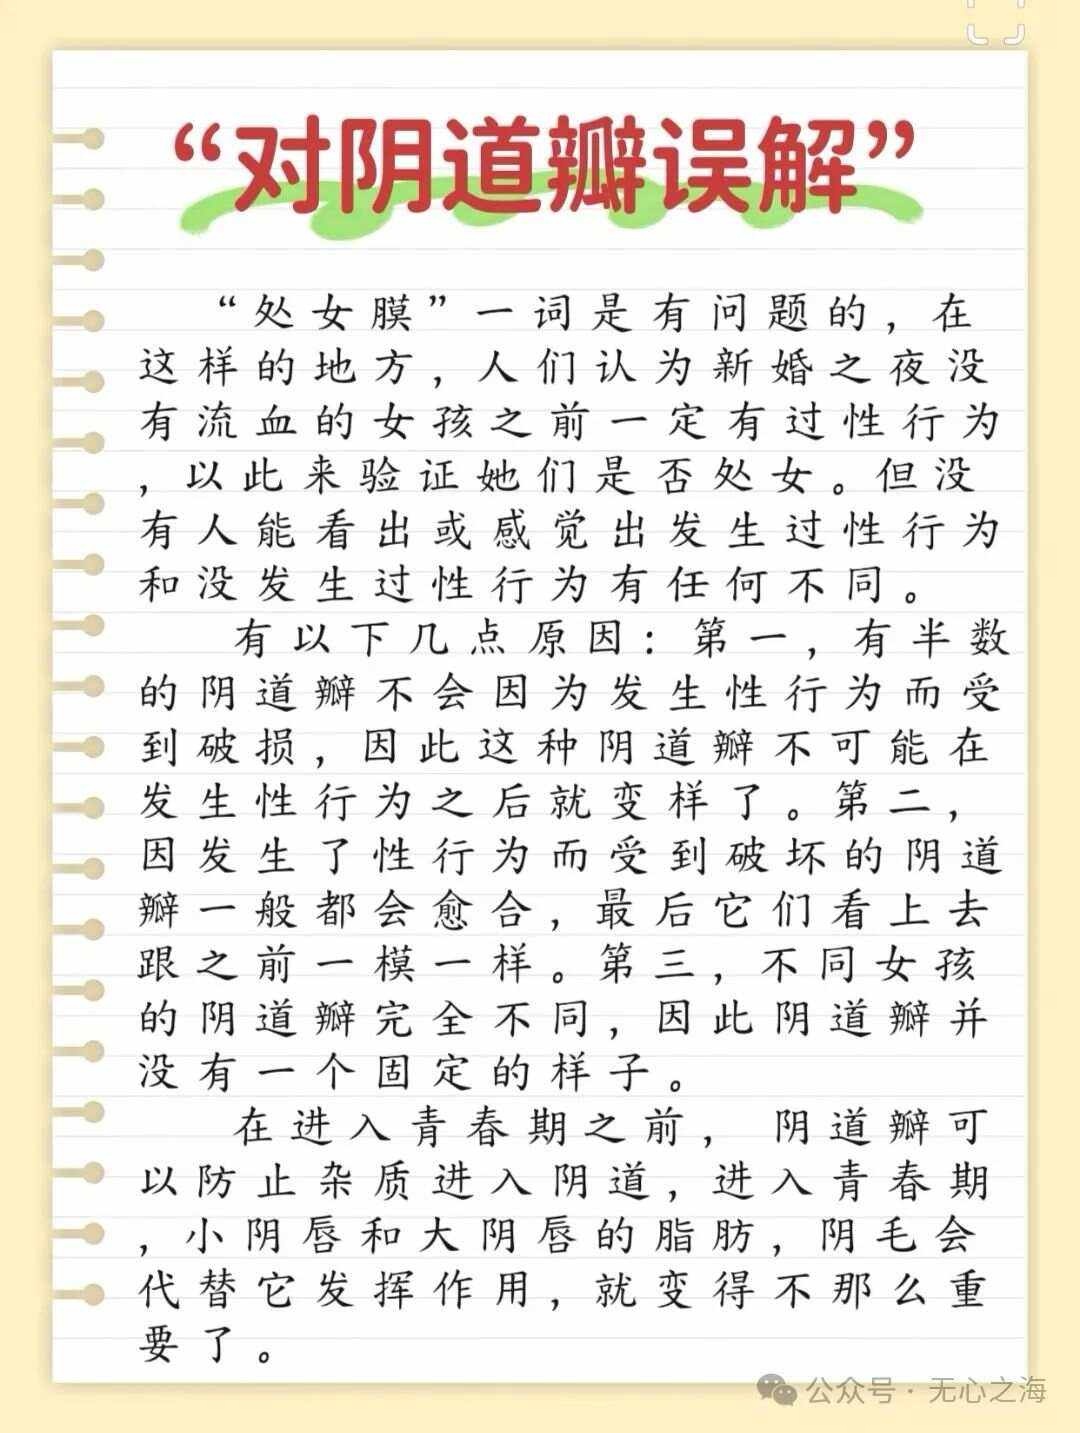 “对阴道瓣误解”
“处女膜”一词是有问题的，在
这样的地方，人们认为新婚之夜没
有流血的女孩之前一定有过性行为
，以此来验证她们是否处女。但没
有人能看出或感觉出发生过性行为
和没发生过性行为有任何不同。
有以下几点原因：第一，有半数
的阴道瓣不会因为发生性行为而受
到破损，因此这种阴道瓣不可能在
发生性行为之后就变样了。第二，
因发生了性行为而受到破坏的阴道
瓣一般都会愈合，最后它们看上去
跟之前一模一样。第三，不同女孩
的阴道瓣完全不同，因此阴道瓣并
没有一个固定的样子。
在进入青春期之前， 阴道瓣可
以防止杂质进入阴道，进入青春期
，小阴唇和大阴唇的脂肪，阴毛会
代替它发挥作用，就变得不那么重
要了。
公众号·无心之海